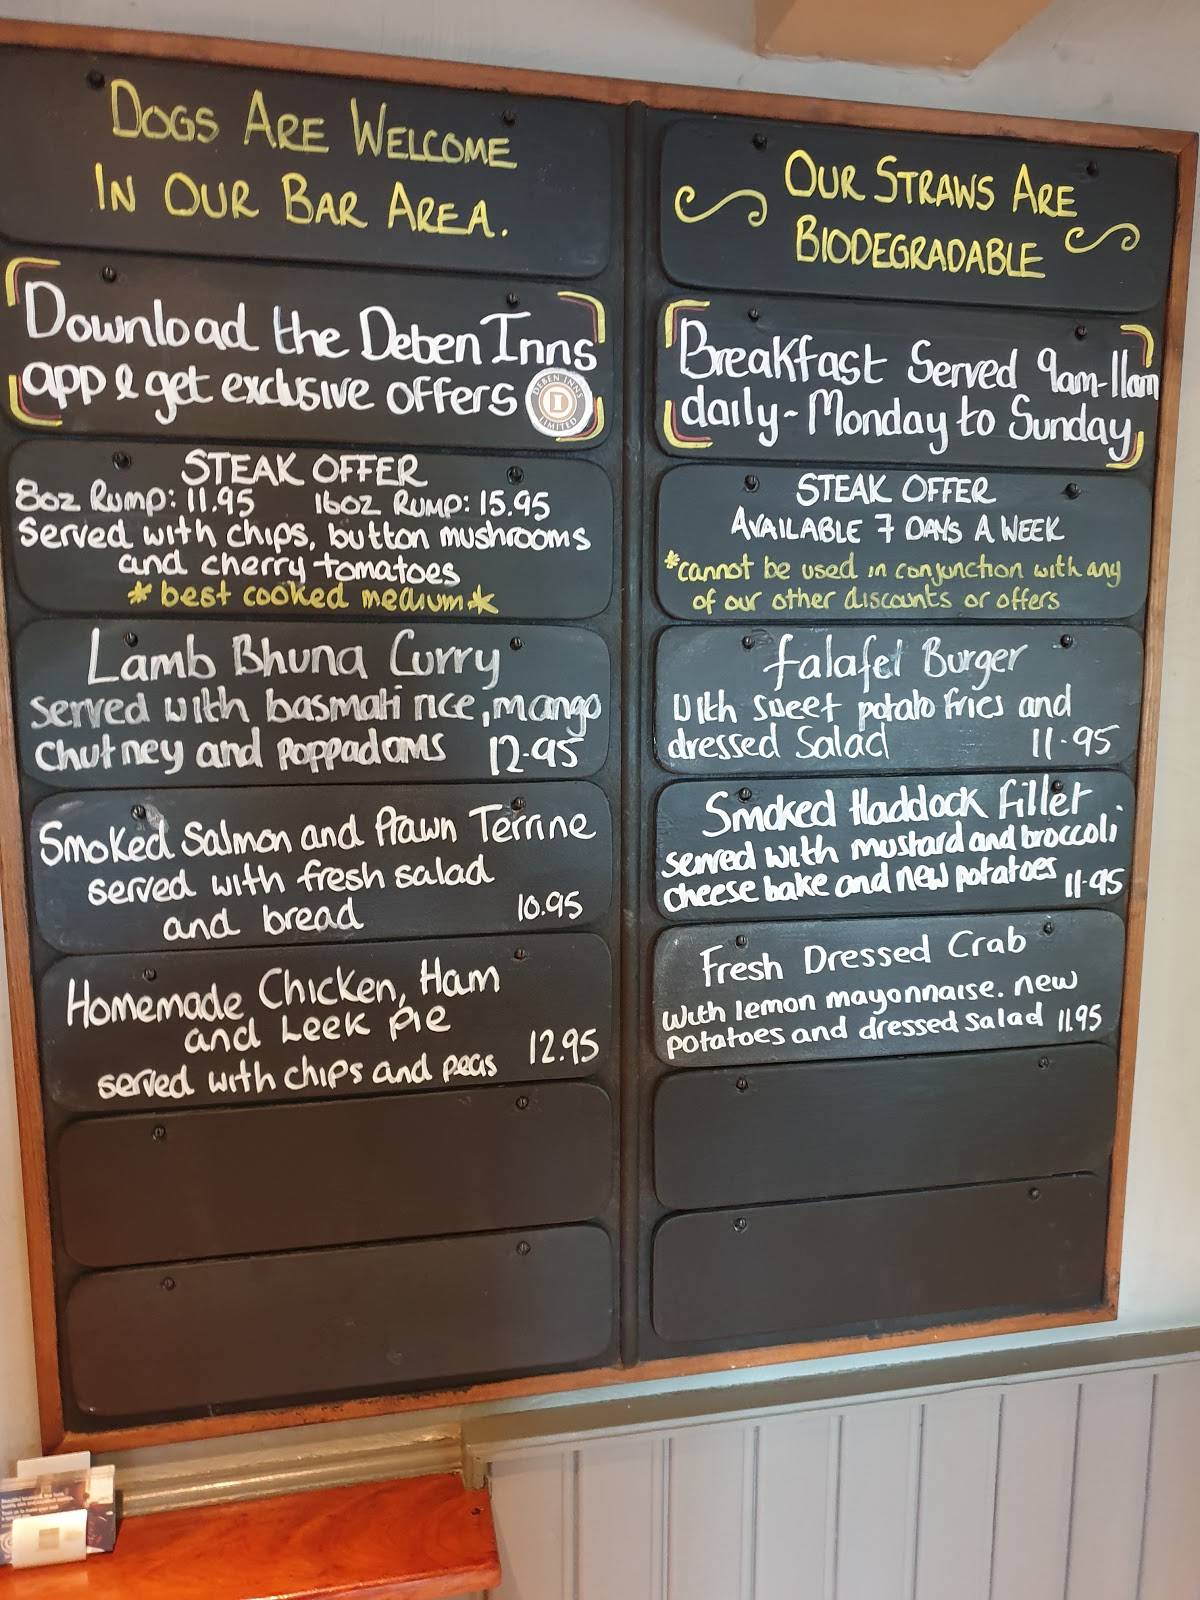 DOGS ARE WELCOME
IN OUR BAR AREA.
Download the Deben Inns
app & get exclusive offers
DEBEN INNS
LIMITED
STEAK OFFER
8oz Rump: 11.95 16oz Rump: 15.95
served with chips, button mushrooms
and cherry tomatoes
*best cooked medium*
Lamb Bhuna Curry
served with basmati rice, mango
chutney and poppadoms 12-95
Smoked Salmon and Prawn Terrine
served with fresh salad
and bread 10.95
Homemade Chicken, Ham
and Leek pie
served with chips and peas 12.95
OUR STRAWS ARE
BIODEGRADABLE
Breakfast Served 9am-11am
daily - Monday to Sunday
STEAK OFFER
AVAILABLE 7 DAYS A WEEK
*cannot be used in conjunction with any
of our other discounts or offers
falafel Burger
with sweet potato fries and
dressed Salad 11-95
Smoked Haddock Fillet
served with mustard and broccoli
cheese bake and new potatoes 11-95
Fresh Dressed Crab
with lemon mayonnaise. new
potatoes and dressed salad 11.95